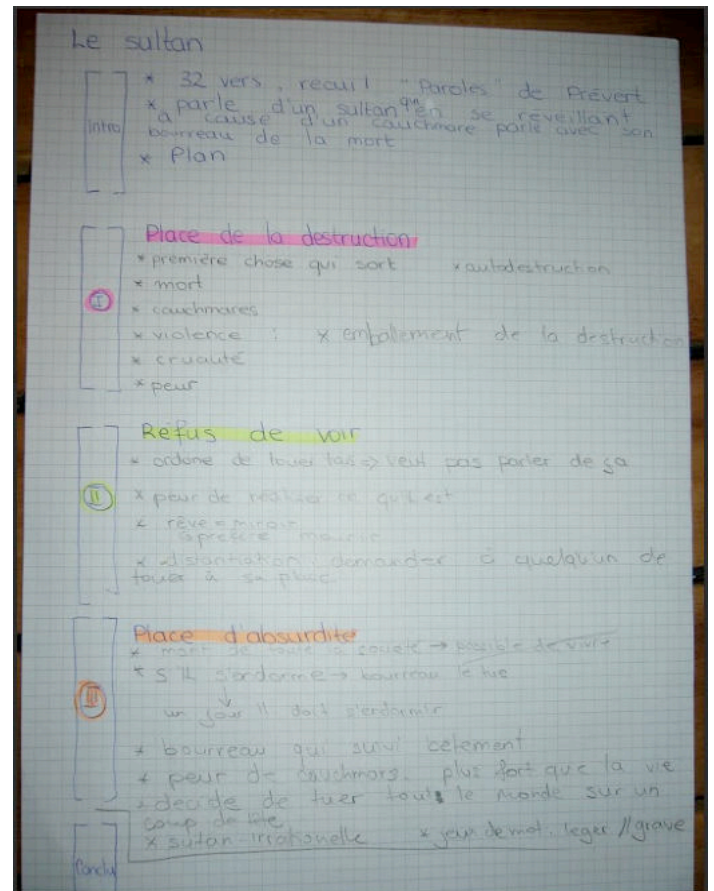 Le sultan
Intro
* 32 vers, recuil "Paroles" de Prévert
* parle d'un sultan qui en se réveillant
à cause d'un cauchmare parle avec son
bourreau de la mort
* Plan
I
Place de la destruction
* première chose qui sort * autodestruction
* mort
* cauchmares
* violence : * embalement de la destruction
* cruauté
* peur
II
Refus de voir
* ordone de touer => veut pas parler de ça
* peur de réaliser ce qu'il est
* rêve = miroir
préfère mourir
* distantiation : demander à quelqu'un de
touer à sa place
III
Place d'absurdite
* mort de toute la société → possible de vivre
* S'IL s'endorme → bourreau le tue
↓
un jour il doit s'endormir
* bourreau qui suivi betement
* peur de cauchmars, plus fort que la vie
* décide de tuer touts le monde sur un
coup de tête
* sutan irrationelle * jeux de mot. leger // grave
Conclu